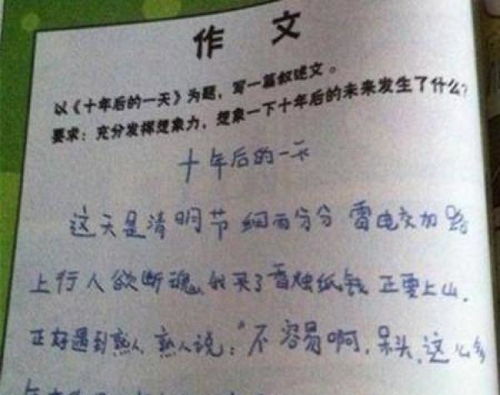 作 文
以《十年后的一天》为题，写一篇叙述文。
要求：充分发挥想象力，想象一下十年后的未来发生了什么？
十年后的一天
这天是清明节 细雨分分 雷电交加 路
上行人欲断魂，我买了香烛纸钱 正要上山，
正好遇到熟人，熟人说：“不容易啊，呆头，这么多